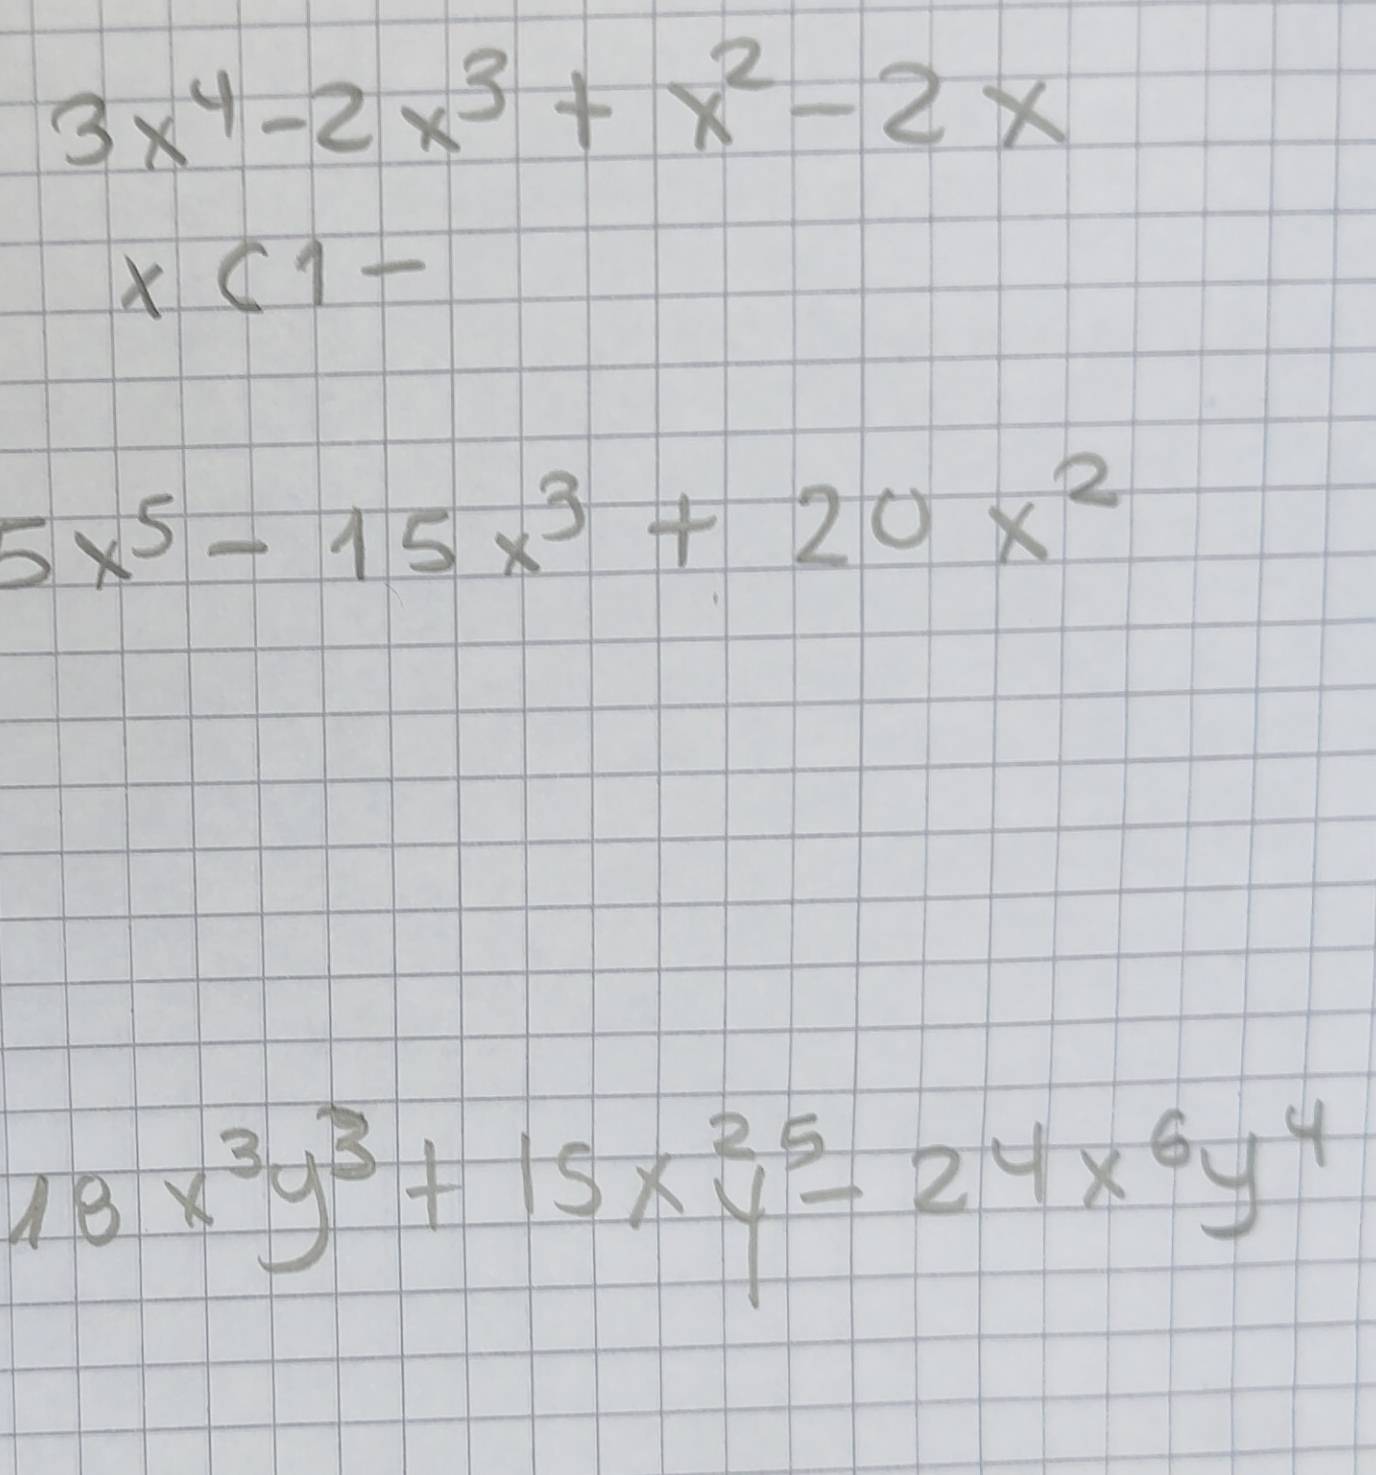 3x⁴-2x³ + x² - 2x
x (1 -
5x⁵ - 15x³ + 20x²
18x³y³ + 15x²y⁵ - 24x⁶y⁴